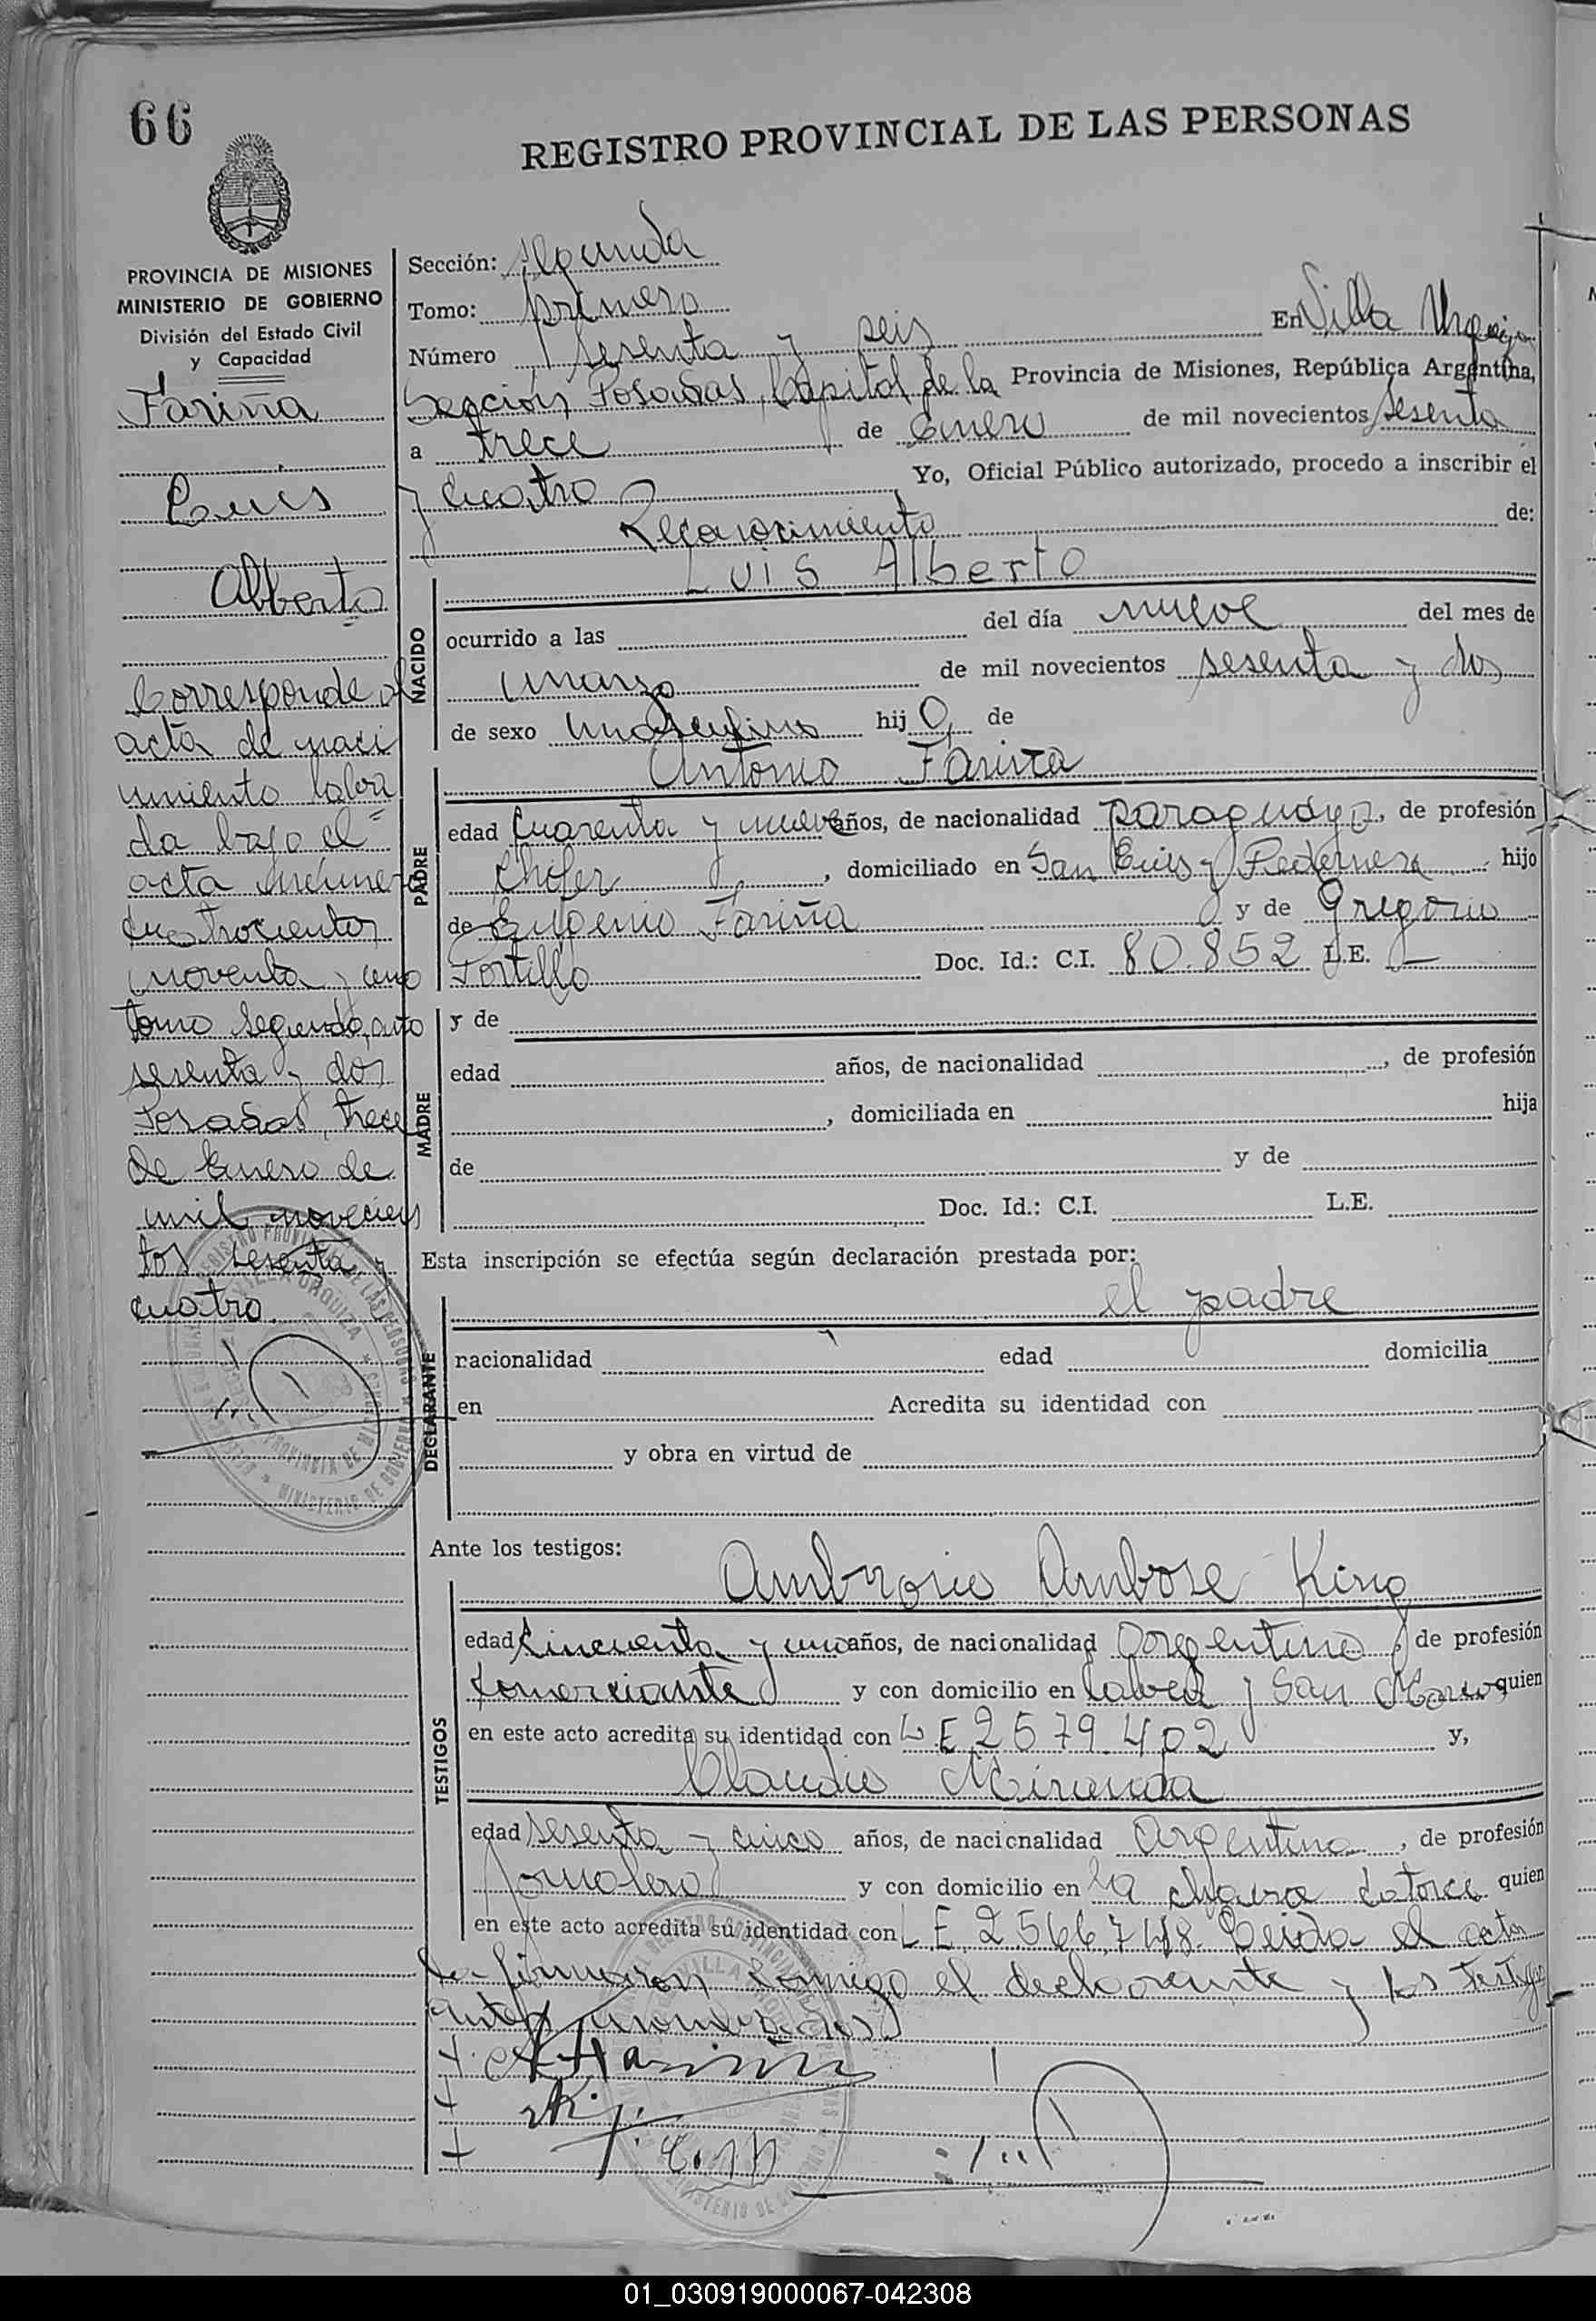 66
REGISTRO PROVINCIAL DE LAS PERSONAS
PROVINCIA DE MISIONES
MINISTERIO DE GOBIERNO
División del Estado Civil
y Capacidad
Fariña
Luis
Alberto
Corresponde al
acta de naci
miento labra
da bajo el
acta número
cuatrocientos
noventa y uno
Tomo segundo, año
sesenta y dos
Posadas, trece
de Enero de
mil novecien
tos sesenta y
cuatro.
Sección: segunda
Tomo: primero
Número sesenta y seis En Villa Urquiza
Sección Posadas, Capital de la Provincia de Misiones, República Argentina,
a trece de Enero de mil novecientos sesenta
y cuatro Yo, Oficial Público autorizado, procedo a inscribir el
Reconocimiento de:
NACIDO
Luis Alberto
ocurrido a las del día nueve del mes de
marzo de mil novecientos sesenta y dos
de sexo masculino hijo de
PADRE
Antonio Fariña
edad cuarenta y nueve años, de nacionalidad paraguayo, de profesión
Chofer, domiciliado en San Luis y Pedernera hijo
de Eugenio Fariña y de Gregoria
Portillo Doc. Id.: C.I. 80.852 L.E. —
MADRE
y de
edad años, de nacionalidad , de profesión
, domiciliada en hija
de y de
Doc. Id.: C.I. L.E.
Esta inscripción se efectúa según declaración prestada por:
DECLARANTE
el padre
nacionalidad edad domicilia
en Acredita su identidad con
y obra en virtud de
Ante los testigos:
TESTIGOS
Ambrosio Ambose King
edad Cincuenta y uno años, de nacionalidad Argentino, de profesión
Comerciante y con domicilio en y San quien
en este acto acredita su identidad con L.E. 2579.402 y,
Claudio Miranda
edad sesenta y cinco años, de nacionalidad Argentino, de profesión
Jornalero y con domicilio en la chacra catorce quien
en este acto acredita su identidad con L.E. 2.566.748. Leida el acta
la firmaron conmigo el declarante y los testigos
antes mencionados
01_030919000067-042308